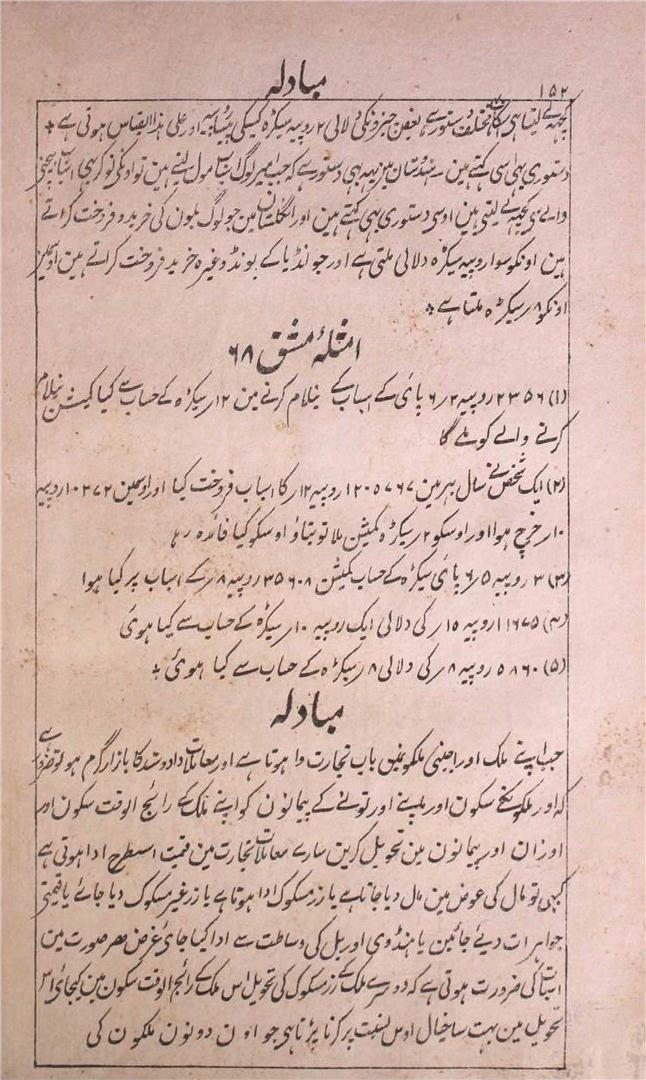 ۱۵۲
مبادلہ
کچھہ لے لیتا ہی اسکا مختلف دستور ہے بعض چیزونکی دلالی ۲ روپیہ سیکڑہ کسیکی روپیہ اور علی ہذا القیاس ہوتی ہے
دستوری بہی اسی کہتے ہین ہندوستان مین یہہ بہی دستور ہے کہ جب امیر لوگ اسباب مول لیتے ہین تو اونکی نوکر بہی اسباب بیچنے
والے سے کچھہ لے لیتی ہین اوسی دستوری بہی کہتے ہین اور انگلستان مین جو لوگ بلون کی خرید و فروخت کراتے
ہین اونکو سوا روپیہ سیکڑہ دلالی ملتی ہے اور جو انڈیا کے بونڈ وغیرہ خرید فروخت کراتے ہین
اونکو ۸ر سیکڑہ ملتا ہے
امثلۂ مشق ۶۸
(۱) ۲۳۵۶ روپیہ ۲ر ۶ پائی کے اسباب کے نیلام کرنے مین ۱۲ر سیکڑہ کے حساب سے کیا کمیشن نیلام
کرنے والے کو ملے گا
(۲) ایک شخص نے سال بہر مین ۱۲۰۵۷۶۷ روپیہ ۱۲ر کا اسباب فروخت کیا اور اوسمین ۱۰۳۷۲ روپیہ
۱۰ر خرچ ہوا اور اوسکو ۲ر سیکڑہ کمیشن ملا تو بتاؤ اوسکو کیا فائدہ رہا
(۳) ۳ روپیہ ۵ر ۶ پائی سیکڑہ کے حساب کمیشن ۳۵۶۰۸ روپیہ ۸ر کے اسباب پر کیا ہوا
(۴) ۱۱۶۷۵ روپیہ ۱۵ر کی دلالی ایک روپیہ ۱۰ر سیکڑہ کے حساب سے کیا ہوئی
(۵) ۵۸۶۰ روپیہ ۸ر کی دلالی ۸ر سیکڑہ کے حساب سے کیا ہوئی
مبادلہ
جب اپنے ملک اور اجنبی ملکونمین باب تجارت وا ہوتا ہے اور معاملات داد و ستد کا بازار گرم ہو تو ضرور ہے
کہ اور ملک کے سکون اور ماپنے اور تولنے کے پیمانون کو اپنے ملک کے رائج الوقت سکون اور
اوزان اور پیمانون مین تحویل کرین سارے معاملات تجارت مین قیمت اسطرح ادا ہوتی ہے
کبہی تو مال کی عوض مین مال دیا جاتا ہے یا زر مسکوک ادا ہوتا ہے یا زر غیر مسکوک دیا جائے یا قیمتی
جواہرات دیئے جائین یا ہنڈوی اور بل کی وساطت سے ادا کیا جائے غرض ہر صورت مین
اسبات کی ضرورت ہوتی ہے کہ دوسرے ملک کے زر مسکوک کی تحویل اس ملک کے رائج الوقت سکون مین کیجائے اس
تحویل مین بہت سا خیال اوس نسبت پر کرنا پڑتا ہی جو اون دونون ملکون کی